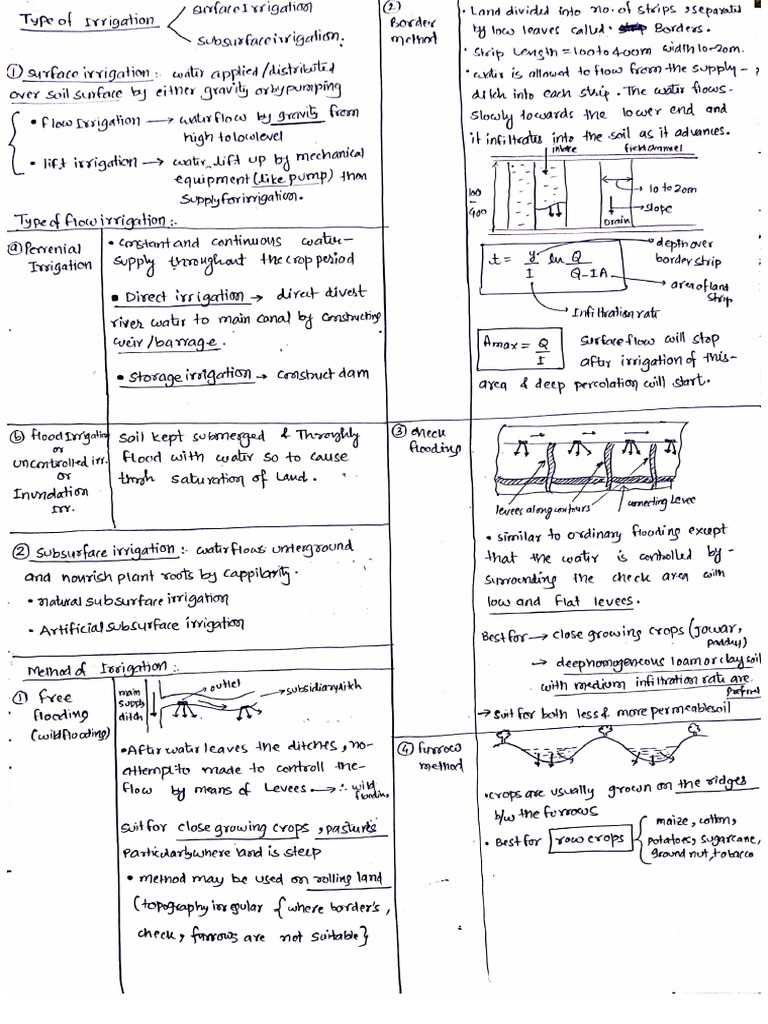 Type of Irrigation
Surface Irrigation
Subsurface irrigation.
① Surface irrigation:- water applied/distributed
over soil surface by either gravity or by pumping
• flow Irrigation → water flow by gravity from
high to low level
• lift irrigation → water lift up by mechanical
equipment (like pump) then
supply for irrigation.
Type of flow irrigation:-
ⓐ Perrenial
Irrigation
• constant and continuous water-
supply throughout the crop period
• Direct irrigation → direct divest
river water to main canal by constructing
weir/barrage.
• Storage irrigation → construct dam
ⓑ flood Irrigation
or
uncontrolled irr.
or
Inundation
Irr.
Soil kept submerged & Throughly
flood with water so to cause
saturation of Land.
② Subsurface irrigation:- water flows underground
and nourish plant roots by cappilarity.
• natural subsurface irrigation
• Artificial subsurface irrigation
Method of Irrigation:-
① free
flooding
(wild flooding)
main
supply
ditch
outlet
subsidiary ditch
• After water leaves the ditches, no-
attempt to made to controll the-
flow by means of Levees → ∴ wild
flooding
suit for close growing crops, pastures
Particularly where land is steep
• method may be used on rolling land
(topography irregular {where border's,
check, furrows are not suitable}
②
Border
method
• Land divided into no. of strips, separated
by low leaves called Borders.
• Strip Length = 100 to 400m width 10-20m.
• water is allowed to flow from the supply-
ditch into each strip. The water flows-
slowly towards the lower end and
it infiltrates into the soil as it advances.
field channel
100
-
400
10 to 20m
slope
Drain
t = y/I ln Q/Q-IA
depth over
border strip
area of land
strip
Infiltration rate
Amax = Q/I
Surface flow will stop
after irrigation of this-
area & deep percolation will start.
③ check
flooding
levees along contours
connecting Levee
• similar to ordinary flooding except
that the water is controlled by-
surrounding the check area with
low and flat levees.
Best for → close growing crops (Jowar,
paddy)
→ deep homogeneous loam or clay soil
with medium infiltration rate are
Prefered
→ Suit for both less & more permeable soil
④ furrow
method
• crops are usually grown on the ridges
b/w the furrows
• Best for row crops
maize, cotton,
potatoes, sugarcane,
ground nut, tobacco